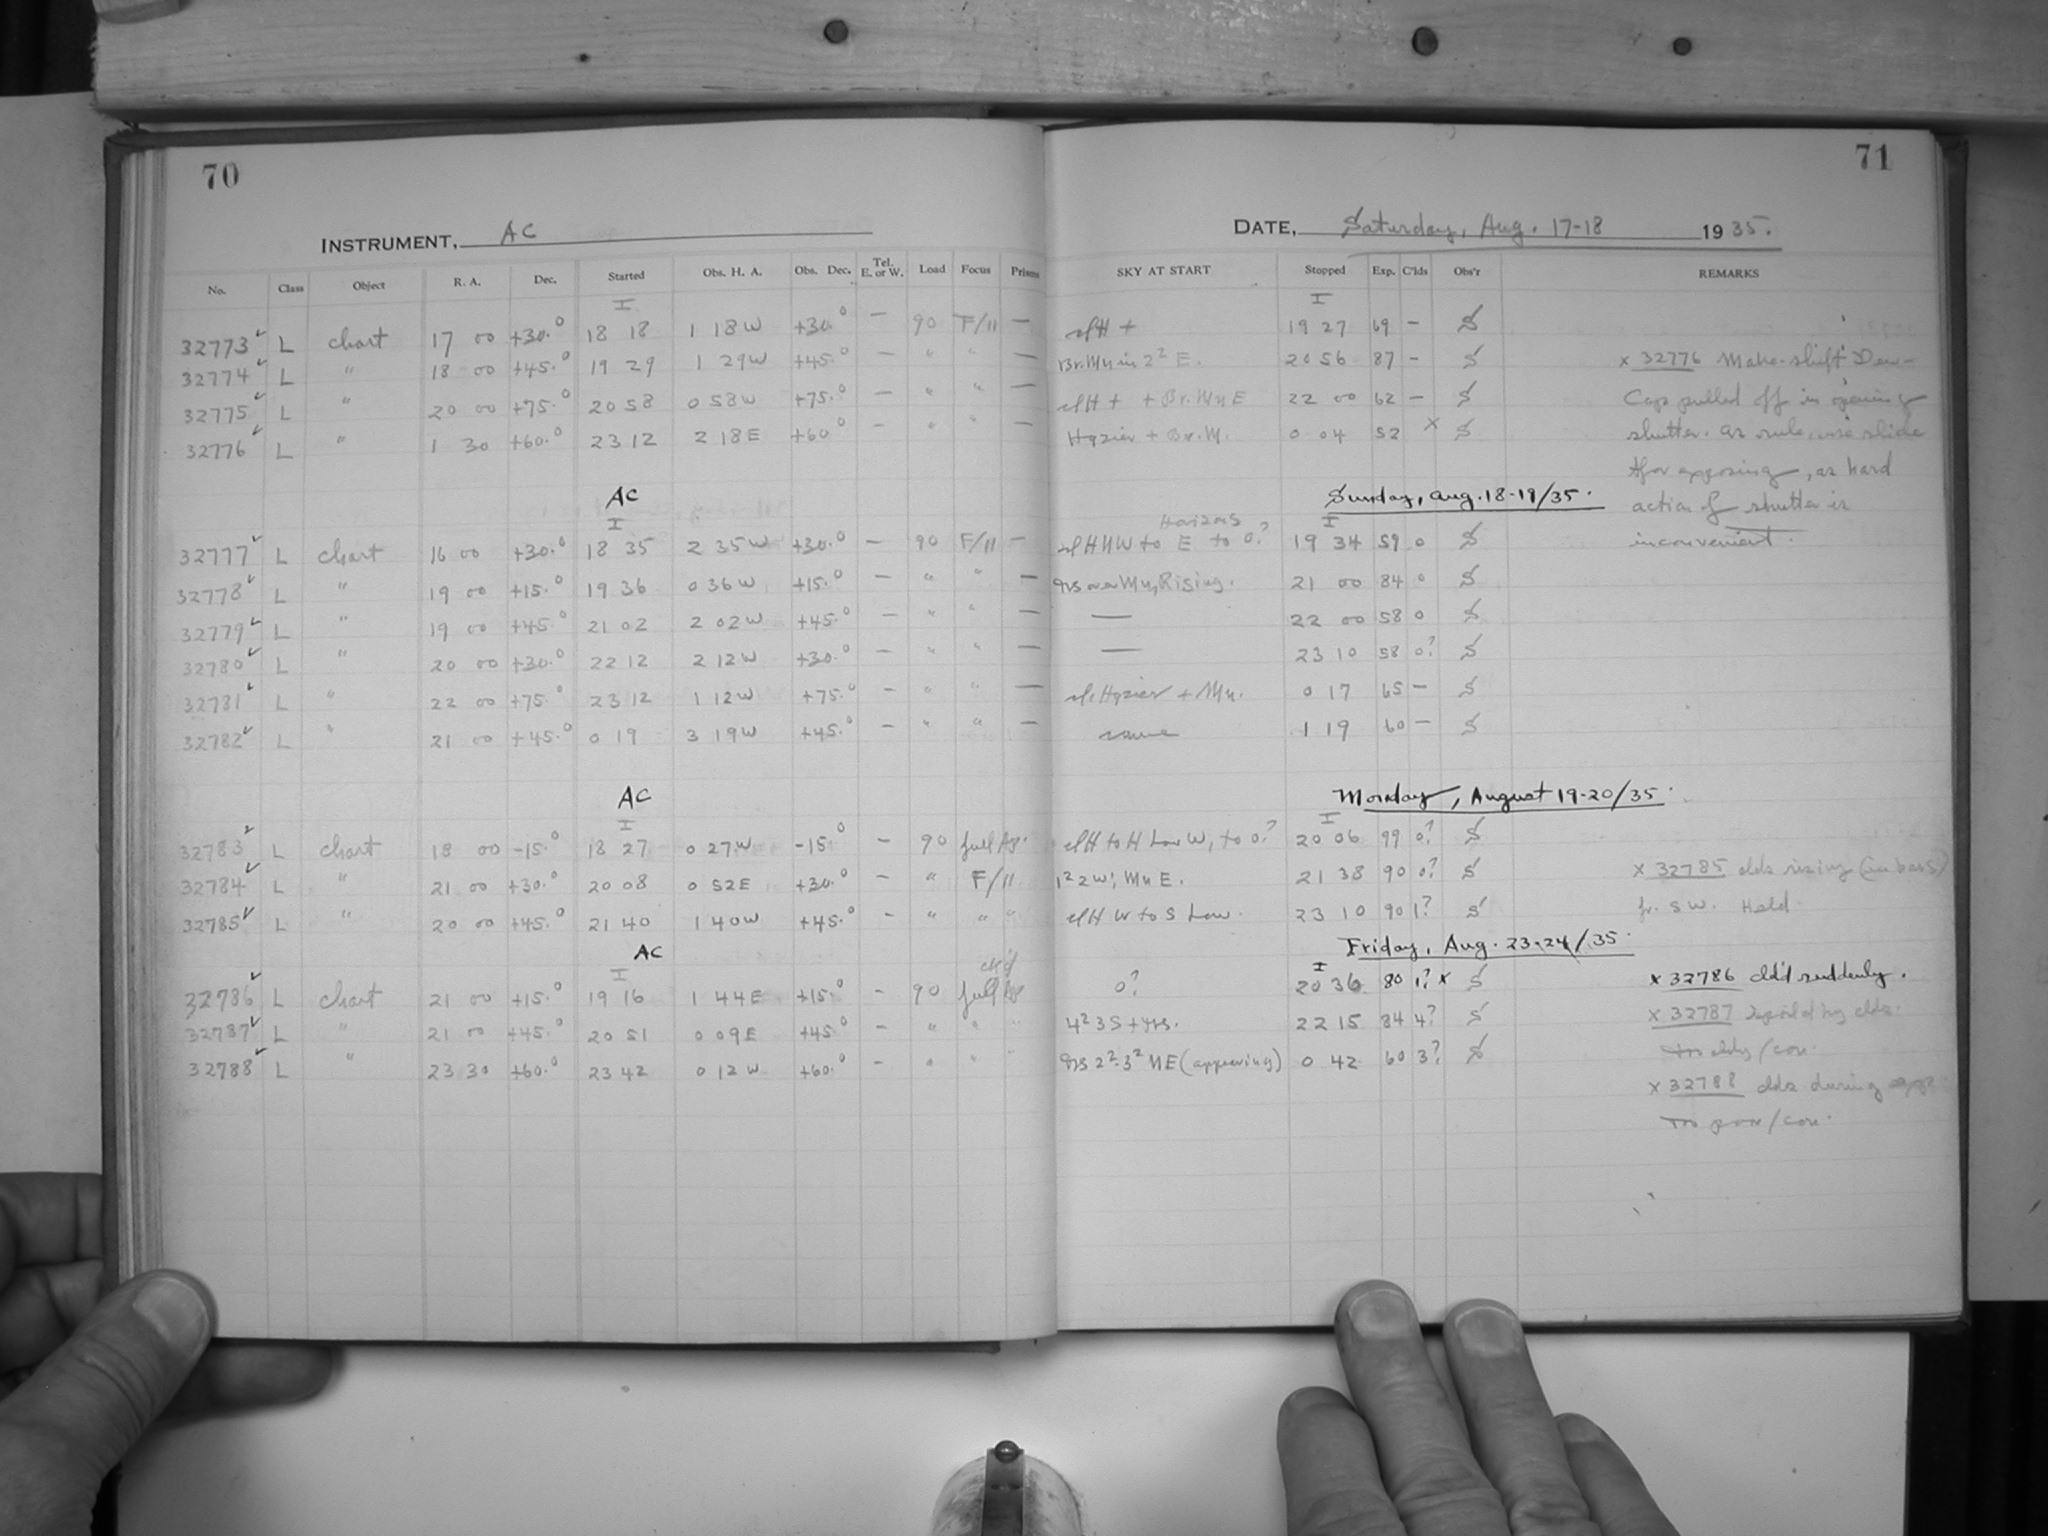 70
71
INSTRUMENT, AC
DATE, Saturday, Aug. 17-18 1935.
No. Class Object R. A. Dec. Started Obs. H. A. Obs. Dec. Tel. E. or W. Load Focus Prisms SKY AT START Stopped Exp. C'lds Obs'r REMARKS
I I
32773 ✓ L chart 17 00 +30.° 18 18 1 18W +30.° — 90 F/11 — slH + 19 27 69 — S
32774 ✓ L " 18 00 +45.° 19 29 1 29W +45.° — " " — Br. Mn in 2² E. 20 56 87 — S x 32776 Make-shift Dew-
32775 ✓ L " 20 00 +75.° 20 58 0 58W +75.° — " " — slH + + Br. Mn E 22 00 62 — S Cap pulled off in opening
32776 ✓ L " 1 30 +60.° 23 12 2 18E +60° — " " — Hazier + Br. M. 0 04 52 x S shutter. As rule, use slide
for exposing, as hard
AC Sunday, Aug. 18-19/35. action of shutter is
I Horizons I
32777 ✓ L chart 16 00 +30.° 18 35 2 35W +30.° — 90 F/11 — slH NW to E to 0? 19 34 59 0 S inconvenient.
32778 ✓ L " 19 00 +15.° 19 36 0 36W +15.° — " " — Mn, Rising. 21 00 84 0 S
32779 ✓ L " 19 00 +45.° 21 02 2 02W +45.° — " " — — 22 00 58 0 S
32780 ✓ L " 20 00 +30.° 22 12 2 12W +30.° — " " — — 23 10 58 0? S
32781 ✓ L " 22 00 +75.° 23 12 1 12W +75.° — " " — sl. Hazier + Mn. 0 17 65 — S
32782 ✓ L " 21 00 +45.° 0 19 3 19W +45.° — " " — same 1 19 60 — S
AC Monday, August 19-20/35.
I I
32783 ✓ L chart 18 00 -15.° 18 27 0 27W -15.° — 90 full Ap. slH to H Low W, to 0? 20 06 99 0? S
32784 ✓ L " 21 00 +30.° 20 08 0 52E +30.° — " F/11. 1² 2W; Mn E. 21 38 90 0? S x 32785 clds rising (in bars)
32785 ✓ L " 20 00 +45.° 21 40 1 40W +45.° — " " " slH W to S Low. 23 10 90 1? S fr. SW. Held.
AC Friday, Aug. 23-24/35.
I ck'd I
32786 ✓ L chart 21 00 +15.° 19 16 1 44E +15.° — 90 full Ap 0? 20 36 80 1? x S x 32786 cld'd suddenly.
32787 ✓ L " 21 00 +45.° 20 51 0 09E +45.° — " " " 4² 3S + 22 15 84 4? S x 32787 clds.
cldy/con.
32788 ✓ L " 23 30 +60.° 23 42 0 12W +60.° — " " " 2²-3² NE (appearing) 0 42 60 3? S
x 32788 clds during
poor/con.